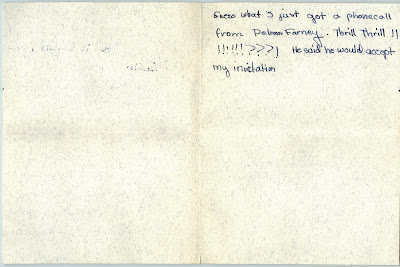 Guess what I just got a phonecall
from Debron Farney. Thrill Thrill !!
!!!!!???! He said he would accept
my invitation